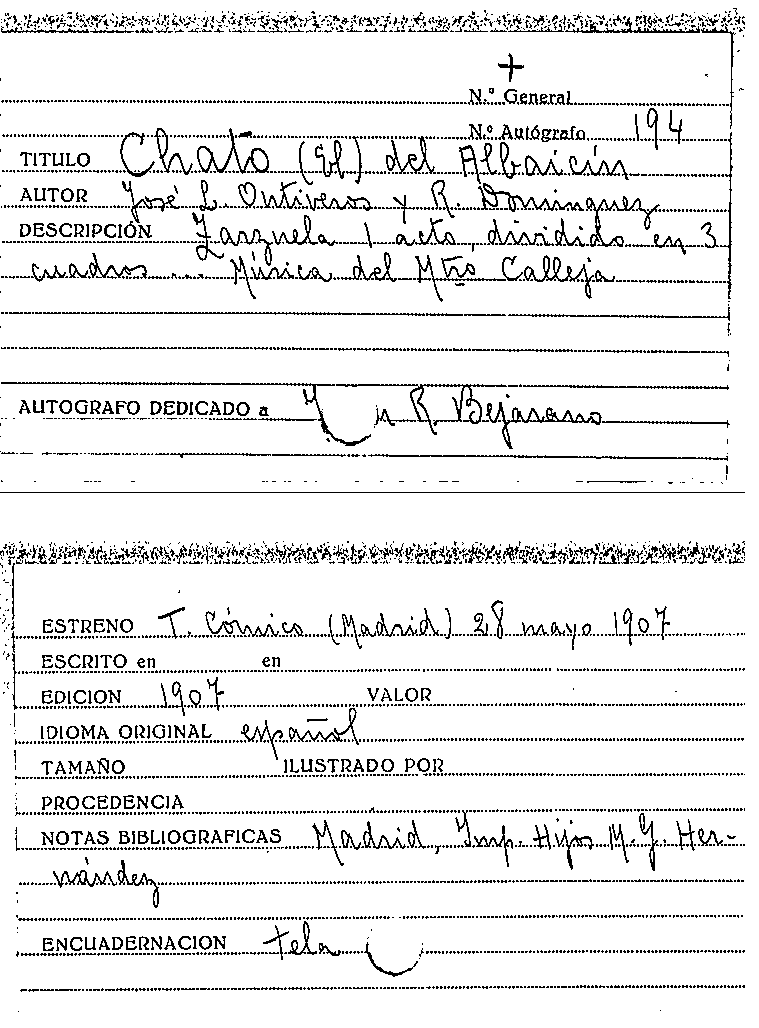 +
N.º General
N.º Autógrafo 194
TITULO Chato (El) del Albaicín
AUTOR José L. Ontiveros y R. Dominguez
DESCRIPCIÓN Zarzuela 1 acto, dividido en 3
cuadros ... Música del Mtro Calleja
AUTOGRAFO DEDICADO a R. Bejarano
ESTRENO T. Cómico (Madrid) 28 mayo 1907
ESCRITO en en
EDICION 1907 VALOR
IDIOMA ORIGINAL español
TAMAÑO ILUSTRADO POR
PROCEDENCIA
NOTAS BIBLIOGRAFICAS Madrid, Imp. Hijos M. G. Her-
nández
ENCUADERNACION tela